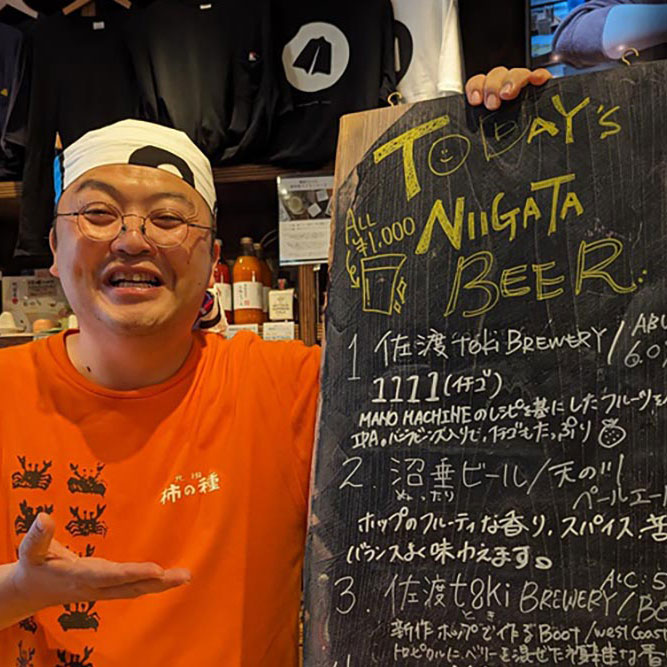 TODAY'S
NIIGATA
BEER.
ALL
¥1,000
1 佐渡 toki BREWERY/
6.0
1111(イチゴ)
MANO MACHINEのレシピを基にしたフルーツ
IPA。バニラビーンズ入りで、イチゴもたっぷり
2. 沼垂ビール/天の川
ぬったり
ペールエー
ホップのフルーティな香り、スパイス、苦
バランスよく味わえます。
3. 佐渡 toki BREWERY/
とき
新作ホップで作る
柿の種